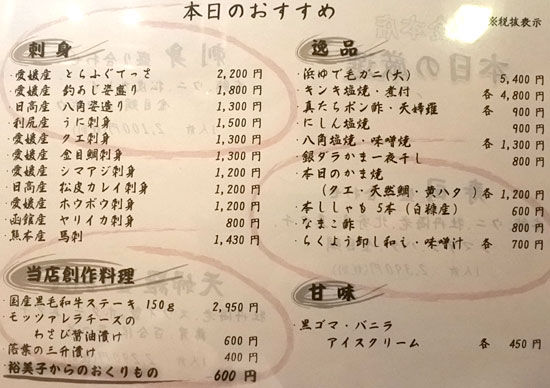 本日のおすすめ
※税抜表示
刺身
・愛媛産 とらふぐてっさ 2,200円
・愛媛産 釣あじ姿盛り 1,800円
・日高産 八角姿造り 1,300円
・利尻産 うに刺身 1,500円
・愛媛産 クエ刺身 1,300円
・愛媛産 金目鯛刺身 1,300円
・愛媛産 シマアジ刺身 1,200円
・日高産 松皮カレイ刺身 1,200円
・愛媛産 ホウボウ刺身 1,200円
・函館産 ヤリイカ刺身 800円
・熊本産 馬刺 1,430円
当店創作料理
・国産黒毛和牛ステーキ 150g 2,950円
・モッツァレラチーズの
わさび醤油漬け 600円
・青葉の三升漬け 400円
・裕美子からのおくりもの 600円
逸品
・浜ゆで毛ガニ(大) 5,400円
・キンキ塩焼・煮付 各 4,800円
・真たちポン酢・天婦羅 各 900円
・にしん塩焼 900円
・八角塩焼・味噌焼 各 1,300円
・銀ダラかま一夜干し 800円
・本日のかま焼
(クエ・天然鯛・黄ハタ) 各 1,200円
・本ししゃも5本(白糠産) 600円
・なまこ酢 800円
・らくよう卸し和え・味噌汁 各 700円
甘味
・黒ゴマ・バニラ
アイスクリーム 各 450円